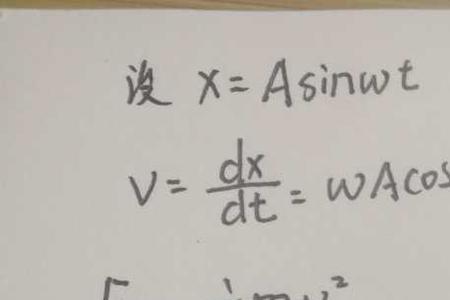 设 x = A sin wt
v = dx/dt = wA cos